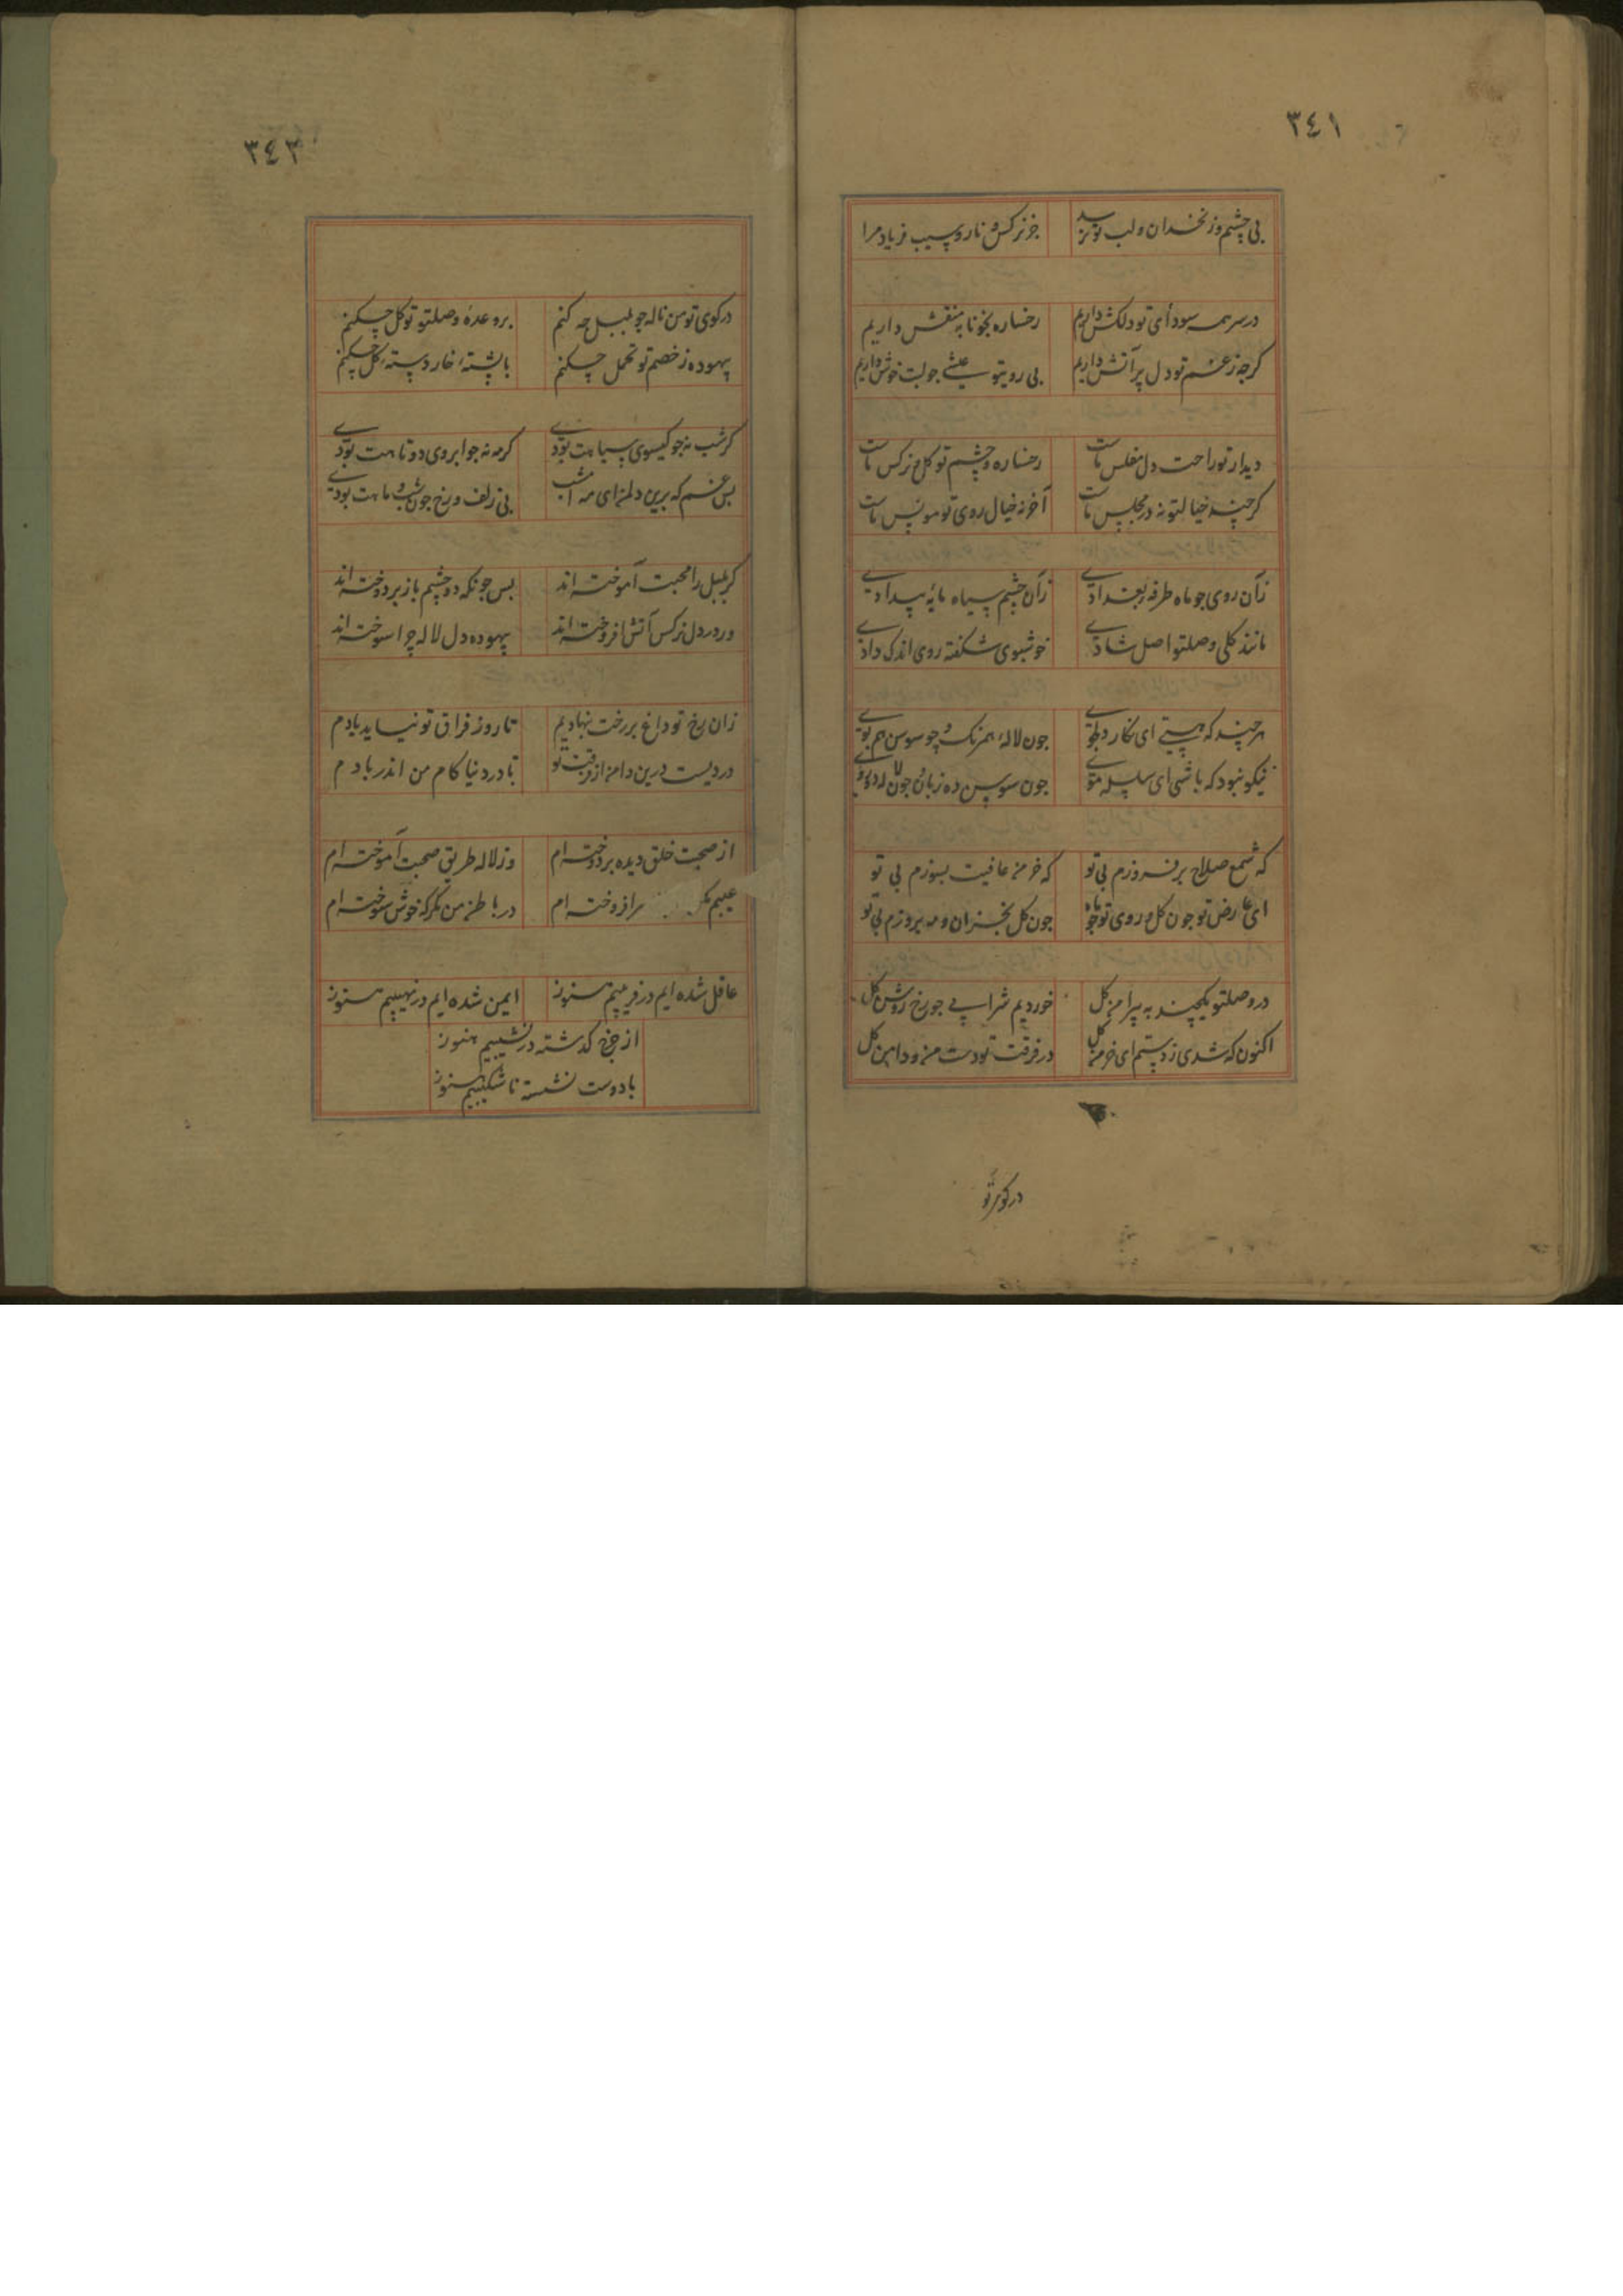 ٣٤١
بی چشم و زنخدان و لب تو نرسد جز نرکس و نار و سیب فریاد مرا
در سر همه سودای تو دلکش داریم رخساره بخونابه منقش داریم
کرچه ز غم تو دل پر آتش داریم بی رویتو عیشی جو لبت خوش داریم
دیدار تو راحت دل مفلس ماست رخساره و چشم تو کل و نرکس ماست
کرچند خیالتو نه در مجلس ماست آخر نه خیال روی تو مونس ماست
زآن روی جو ماه طرفه بغدادی زآن چشم سیاه مایه بیدادی
مانند کلی وصلتو اصل شادی خوشبوی شکفته روی اندک دادی
هر چند که هستی ای نکار دلجوی جون لاله همرنک و جو سوسن هم بوی
نیکو نبود که باشی ای سلسله موی جون سوسن ده زبان و جون لاله دو روی
که شمع صلاح برفروزم بی تو که خرمن عافیت بسوزم بی تو
ای عارض تو جون کل و روی تو جو ماه جون کل بخزان و مه بروزم بی تو
در وصلتو یکچند به پیرامن کل خوردیم شرابی جو رخ روشن کل
اکنون که شدی ز دستم ای خرمن کل در فرقت تو دست من و دامن کل
در کوی تو
٣٤٢
در کوی تو من ناله جو بلبل چه کنم بر وعدهٔ وصلتو توکل چکنم
بیهوده ز خصم تو تحمل چکنم با پشتهٔ خار دستهٔ کل چکنم
کر شب نه جو کیسوی سیاهت بودی کر مه نه جو ابروی دوتاهت بودی
بس غم که برین دلمی ای مه امشب بی زلف و رخ جون شب و ماهت بودی
کر بلبل را محبت آموخته اند بس جونکه دو چشم باز بردوخته اند
ور در دل نرکس آتش افروخته اند بیهوده دل لاله چرا سوخته اند
زان رخ تو داغ بر رخت بنهادیم تا روز فراق تو نیاید یادم
دردیست درین دامن از فرقت تو تا در دنیا کام من اندر بادم
از صحبت خلق دیده بردوخته ام وز لاله طریق صحبت آموخته ام
عیبم مکن افروخته ام در باطن من نکر که خوش سوخته ام
عاقل شده ایم در فریبیم هنوز ایمن شده ایم در نهیبیم هنوز
از چرخ کذشته در نشیبیم هنوز
با دوست نشسته ناشکیبیم هنوز